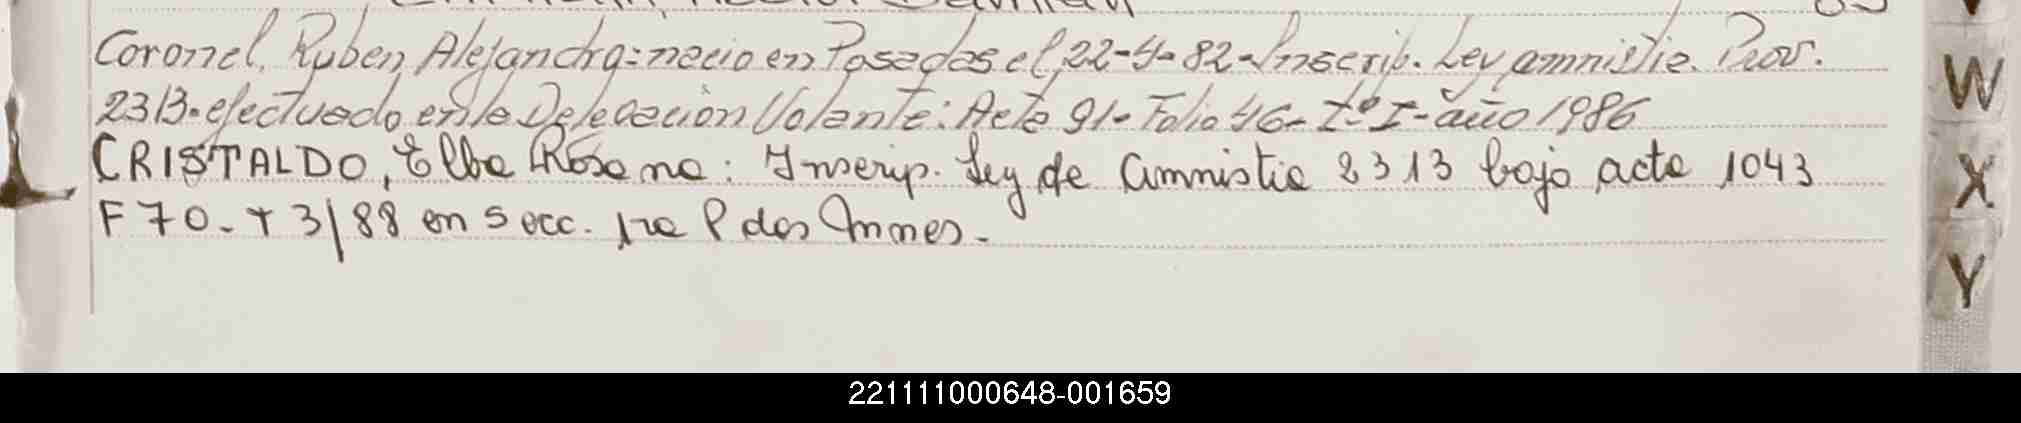 Coronel, Ruben Alejandro: nacio en Posadas el 22-4-82-Inscrip. Ley amnistia. Prov.
2313-efectuado en la Delegación Volante: Acta 91- Folio 46- Tº I- año 1986
CRISTALDO, Elba Rosana: Inscrip. Ley de Amnistia 2313 bajo acta 1043
F 70- t 3/88 en Secc. 1ra Pdas Mnes.-
W
X
Y
221111000648-001659